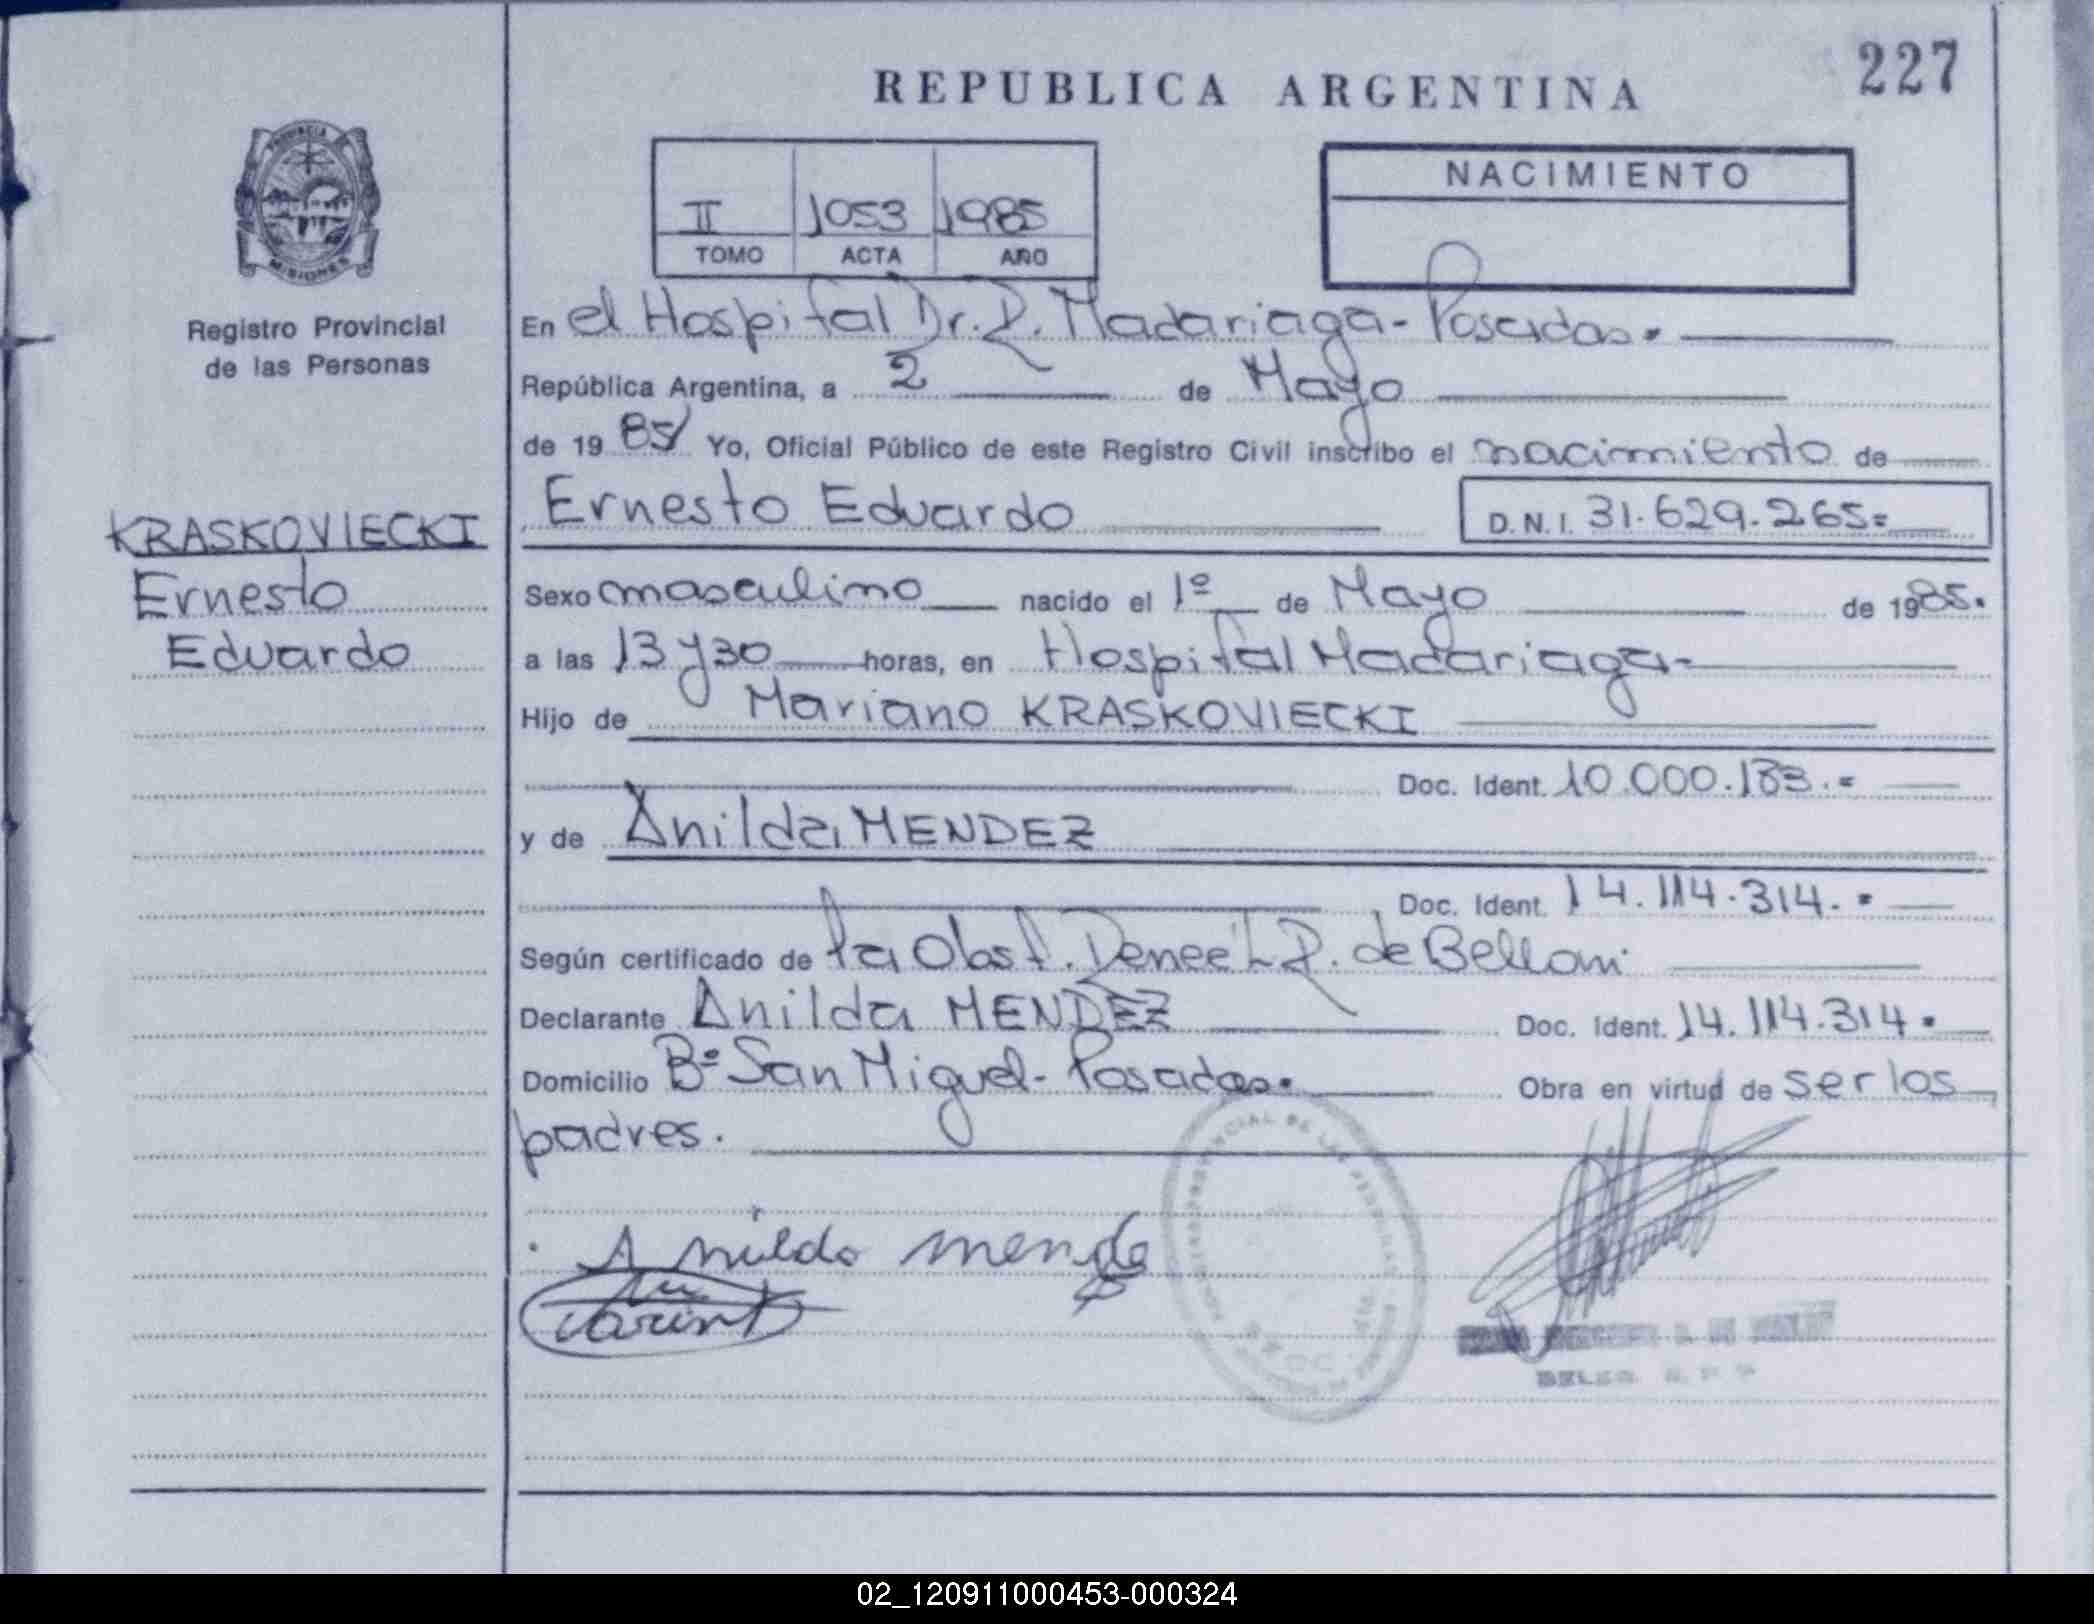 227
REPUBLICA ARGENTINA
PROVINCIA
MISIONES
Registro Provincial
de las Personas
II 1053 1985
TOMO ACTA AÑO
NACIMIENTO
En el Hospital Dr. R. Madariaga - Posadas.
República Argentina, a 2 de Mayo
de 1985 Yo, Oficial Público de este Registro Civil inscribo el nacimiento de
KRASKOVIECKI
Ernesto
Eduardo
Ernesto Eduardo D.N.I. 31.629.265=
Sexo masculino nacido el 1º de Mayo de 1985.
a las 13 y 30 horas, en Hospital Madariaga-
Hijo de Mariano KRASKOVIECKI
Doc. Ident. 10.000.183.=
y de Anilda MENDEZ
Doc. Ident. 14.114.314.=
Según certificado de la Obst. L R. de Belloni
Declarante Anilda MENDEZ Doc. Ident. 14.114.314.
Domicilio Bº San Miguel - Posadas. Obra en virtud de ser los
padres.
Anilda
02_120911000453-000324